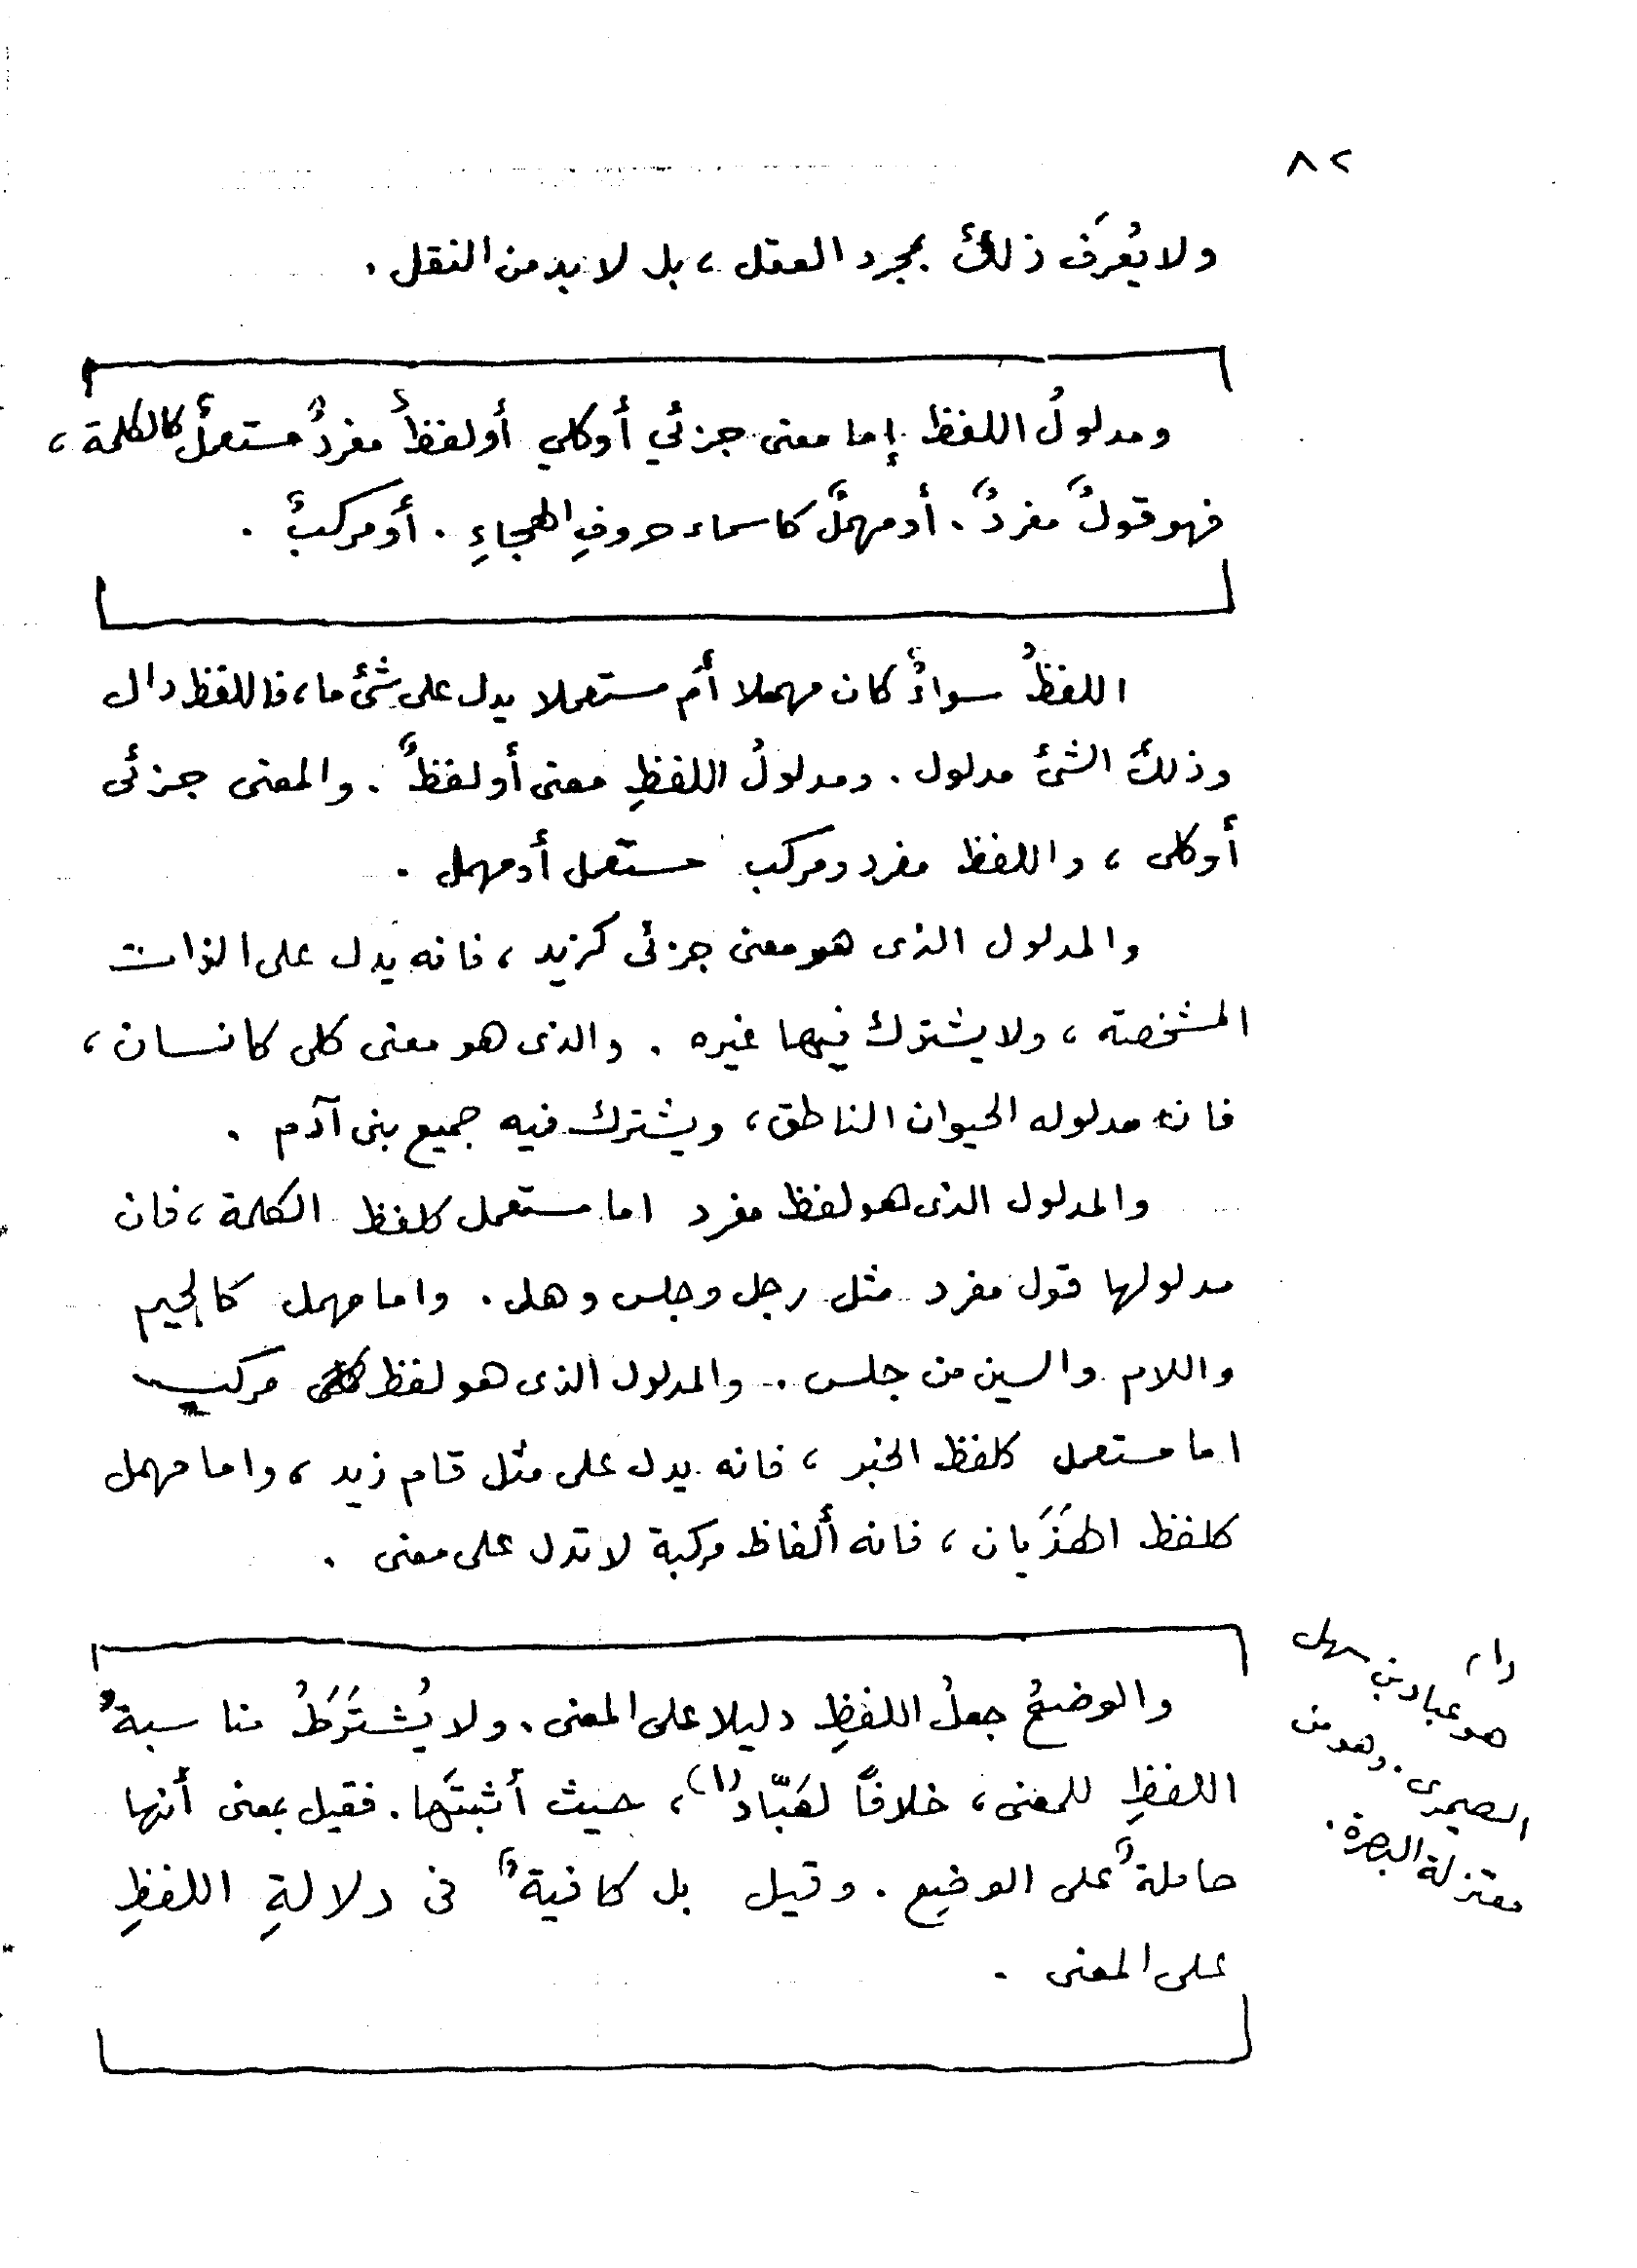 ٨٢
ولا يُعرَف ذلك بمجرد العقل ، بل لا بد من النقل .
ومدلولُ اللفظ إما معنى جزئي أو كلي أو لفظٌ مفردٌ مستعملٌ كالكلمة ،
فهو قولٌ مفردٌ . أو مهملٌ كاسماء حروفِ الهجاءِ . أو مركبٌ .
اللفظُ سواءٌ كان مهملا أم مستعملا يدل على شئ ما ، فاللفظ دال
وذلك الشئ مدلول . ومدلولُ اللفظِ معنى أو لفظٌ . والمعنى جزئى
أو كلى ، واللفظ مفرد ومركب مستعمل أو مهمل .
والمدلول الذى هو معنى جزئى كزيد ، فانه يدل على الذات
المشخصة ، ولا يشترك فيها غيره . والذى هو معنى كلى كانسان ،
فانه مدلوله الحيوان الناطق ، ويشترك فيه جميع بنى آدم .
والمدلول الذى هو لفظ مفرد اما مستعمل كلفظ الكلمة ، فان
مدلولها قول مفرد مثل رجل وجلس وهل . واما مهمل كالجيم
واللام والسين من جلس . والمدلول الذى هو لفظ مركب
اما مستعمل كلفظ الخبر ، فانه يدل على مثل قام زيد ، واما مهمل
كلفظ الهَذَيان ، فانه ألفاظ مركبة لا تدل على معنى .
والوضعُ جعلُ اللفظِ دليلا على المعنى . ولا يُشتَرَطُ مناسبةُ
اللفظِ للمعنى ، خلافًا لعَبّاد (١) ، حيث أثبتَها . فقيل بمعنى أنها
حاملةٌ على الوضعِ . وقيل بل كافيةٌ فى دلالةِ اللفظِ
على المعنى .
(١)
هو عباد بن سهل
الصيمرى . وهو من
معتزلة البصرة .